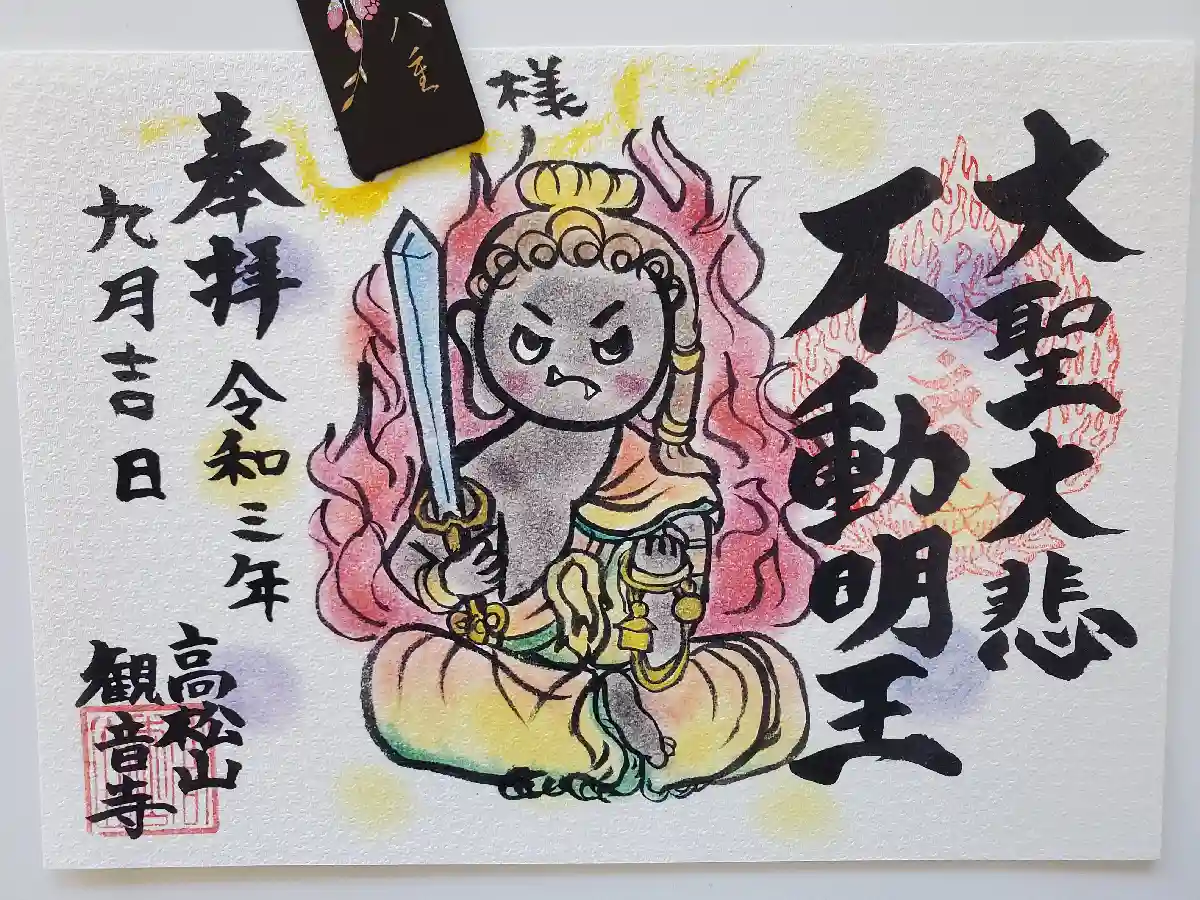 大聖大悲
不動明王
様
八重
奉拝 令和三年
九月吉日
高松山
観音寺